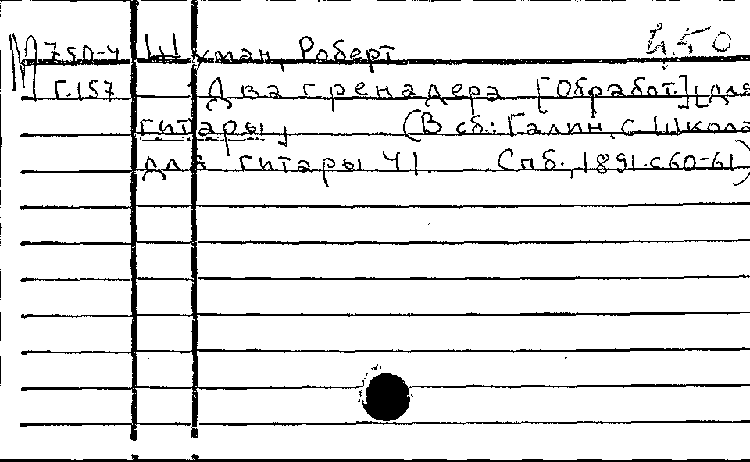 М 750-4 Шуман, Роберт 450
Г.157 Два гренадера [Обработ.] [для
гитары] (В сб.: Галин, С. Школа
для гитары Ч1 Спб., 1891. с 60-61)